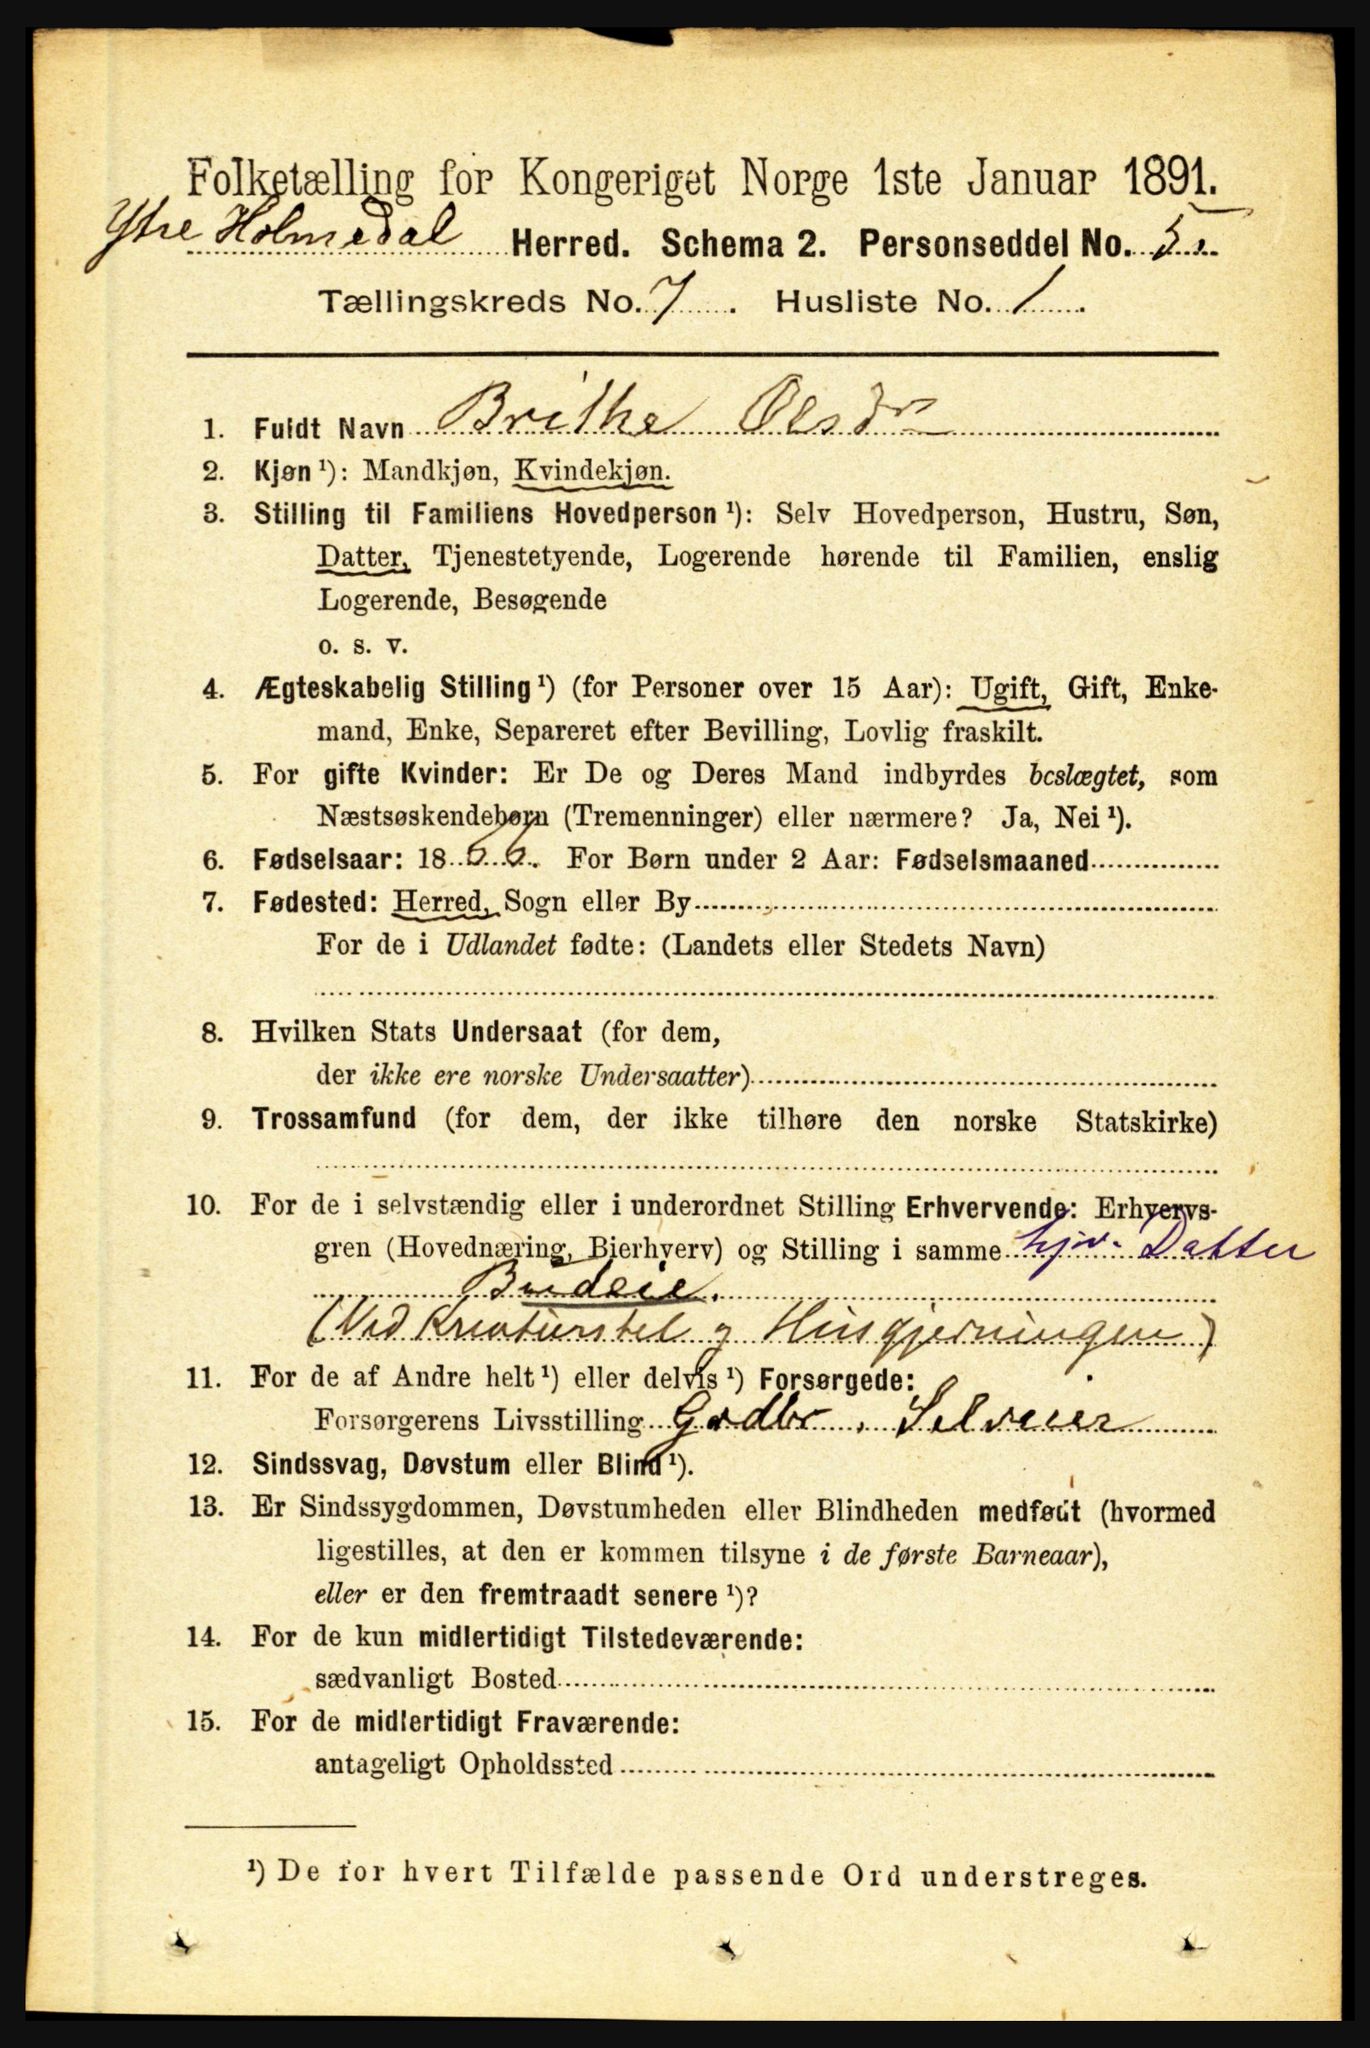 Folketælling for Kongeriget Norge 1ste Januar 1891.
Ytre Holmedal Herred. Schema 2. Personseddel No. 5.
Tællingskreds No. 7. Husliste No. 1.
1. Fuldt Navn Brithe Olsdr
2. Kjøn ¹): Mandkjøn, Kvindekjøn.
3. Stilling til Familiens Hovedperson ¹): Selv Hovedperson, Hustru, Søn,
Datter, Tjenestetyende, Logerende hørende til Familien, enslig
Logerende, Besøgende
o. s. v.
4. Ægteskabelig Stilling ¹) (for Personer over 15 Aar): Ugift, Gift, Enke-
mand, Enke, Separeret efter Bevilling, Lovlig fraskilt.
5. For gifte Kvinder: Er De og Deres Mand indbyrdes beslægtet, som
Næstsøskendebørn (Tremenninger) eller nærmere? Ja, Nei ¹).
6. Fødselsaar: 18 66. For Børn under 2 Aar: Fødselsmaaned
7. Fødested: Herred, Sogn eller By
For de i Udlandet fødte: (Landets eller Stedets Navn)
8. Hvilken Stats Undersaat (for dem,
der ikke ere norske Undersaatter)
9. Trossamfund (for dem, der ikke tilhøre den norske Statskirke)
10. For de i selvstændig eller i underordnet Stilling Erhvervende: Erhvervs-
gren (Hovednæring, Bierhverv) og Stilling i samme hjv. Datter
Budeie.
(Ved Kreaturstel og Husgjerningen)
11. For de af Andre helt ¹) eller delvis ¹) Forsørgede:
Forsørgerens Livsstilling Grdbr. Selveier
12. Sindssvag, Døvstum eller Blind ¹).
13. Er Sindssygdommen, Døvstumheden eller Blindheden medfødt (hvormed
ligestilles, at den er kommen tilsyne i de første Barneaar),
eller er den fremtraadt senere ¹)?
14. For de kun midlertidigt Tilstedeværende:
sædvanligt Bosted
15. For de midlertidigt Fraværende:
antageligt Opholdssted
¹) De for hvert Tilfælde passende Ord understreges.